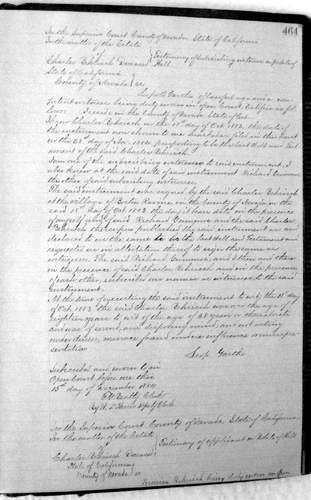 464
In the Superior Court County of Nevada State of California
In the matter of the Estate
of
Charles Deceased
Testimony of Subscribing witness on probate of Will
State of California
County of Nevada ss
being duly sworn in open Court testifies as fol
lows: I reside in the County of Nevada State of Cal.
I knew Charles on the 18th day of Oct 1883 the date of
the instrument now shown to me marked as filed in this Court
on the 28th day of Nov. 1884 purporting to be the last Will and Test
ament of the said Charles
I am one of the subscribing witnesses to said instrument. I
also knew at the said date of said instrument Richard
the other of said subscribing witnesses
The said instrument was signed by the said Charles
at the village of in the County of Nevada on the
said 18th day of Oct 1883 the day it bears date in the presence
of myself and of said Richard and the said Charles
thereupon published the said instrument as and
declared to us the same to be his last Will and Testament and
requested us in attestation thereof to sign the same as
witnesses. The said Richard and I then and there
in the presence of said Charles and in the presence
of each other, subscribed our names as witnesses to the said
Instrument.
At the time of executing the said instrument to wit the 18th day
of Oct. 1883 the said Charles was over the age of
Eighteen years to wit of the age of years or thereabouts
and was of sound and disposing mind, and not acting
under duress, menace fraud undue influence or misrepre-
sentation
Subscribed and sworn to in
Open Court before me this
15th day of December 1884
Clerk
By Deputy Clerk
In the Superior Court County of Nevada, State of California
In the matter of the Estate
of
Charles Deceased
Testimony of applicant on Probate of Will
State of California
County of Nevada ss
being duly sworn in open